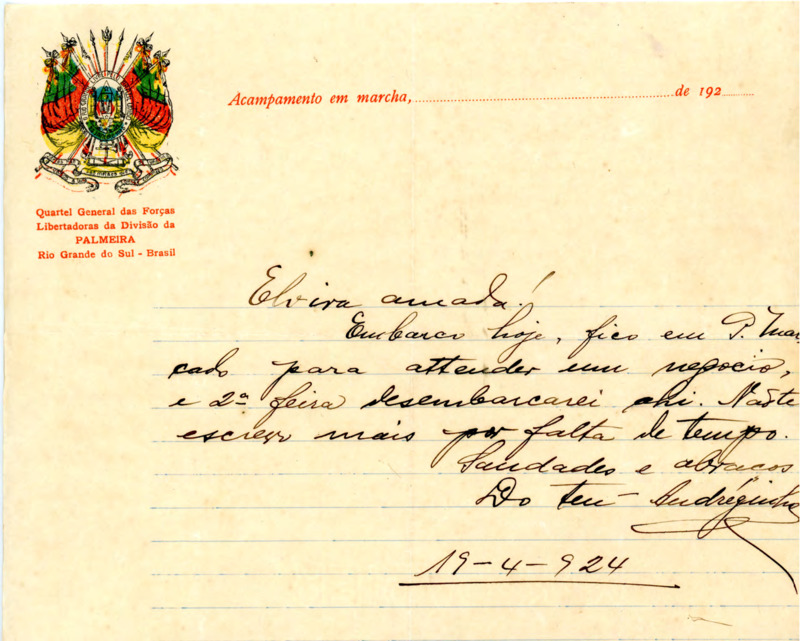 Acampamento em marcha, de 192
Quartel General das Forças
Libertadoras da Divisão da
PALMEIRA
Rio Grande do Sul - Brasil
Elvira amada!
Embarco hoje, fico em P. Mar
cado para attender um negocio,
e 2ª feira desembarcarei ahi. Não te
escrevo mais por falta de tempo.
Saudades e abraços
Do teu - Andrézinho
19-4-924